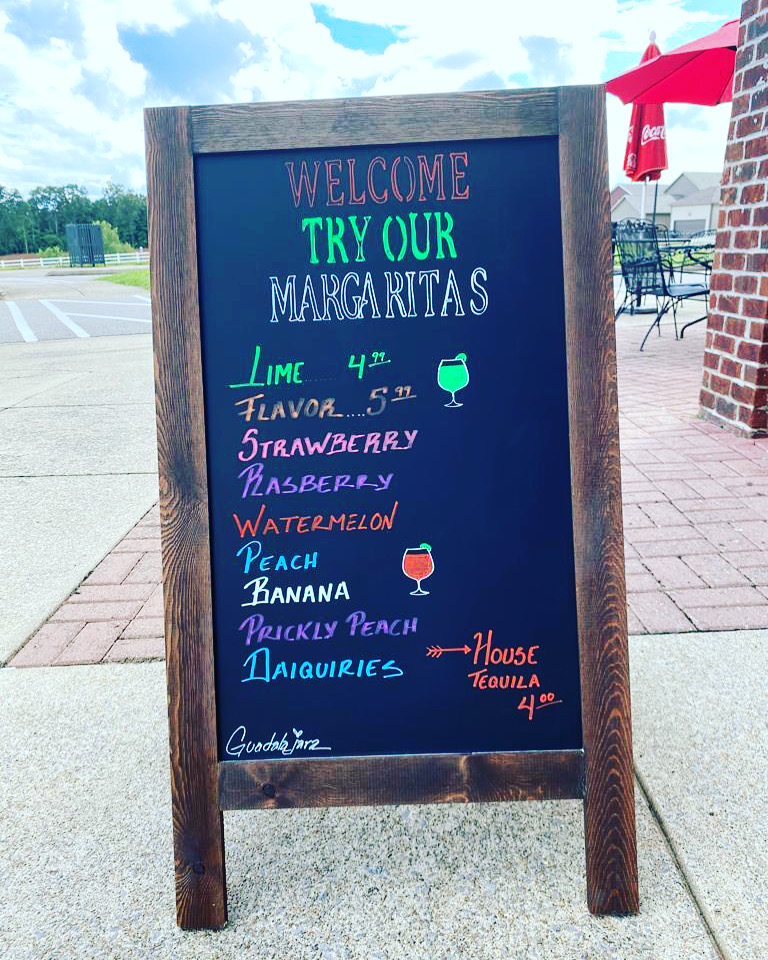 WELCOME
TRY OUR
MARGARITAS
LIME...... 4.99
FLAVOR....5.99
STRAWBERRY
RASBERRY
WATERMELON
PEACH
BANANA
PRICKLY PEACH
DAIQUIRIES
HOUSE
TEQUILA
4.00
Guadalajara
Coca